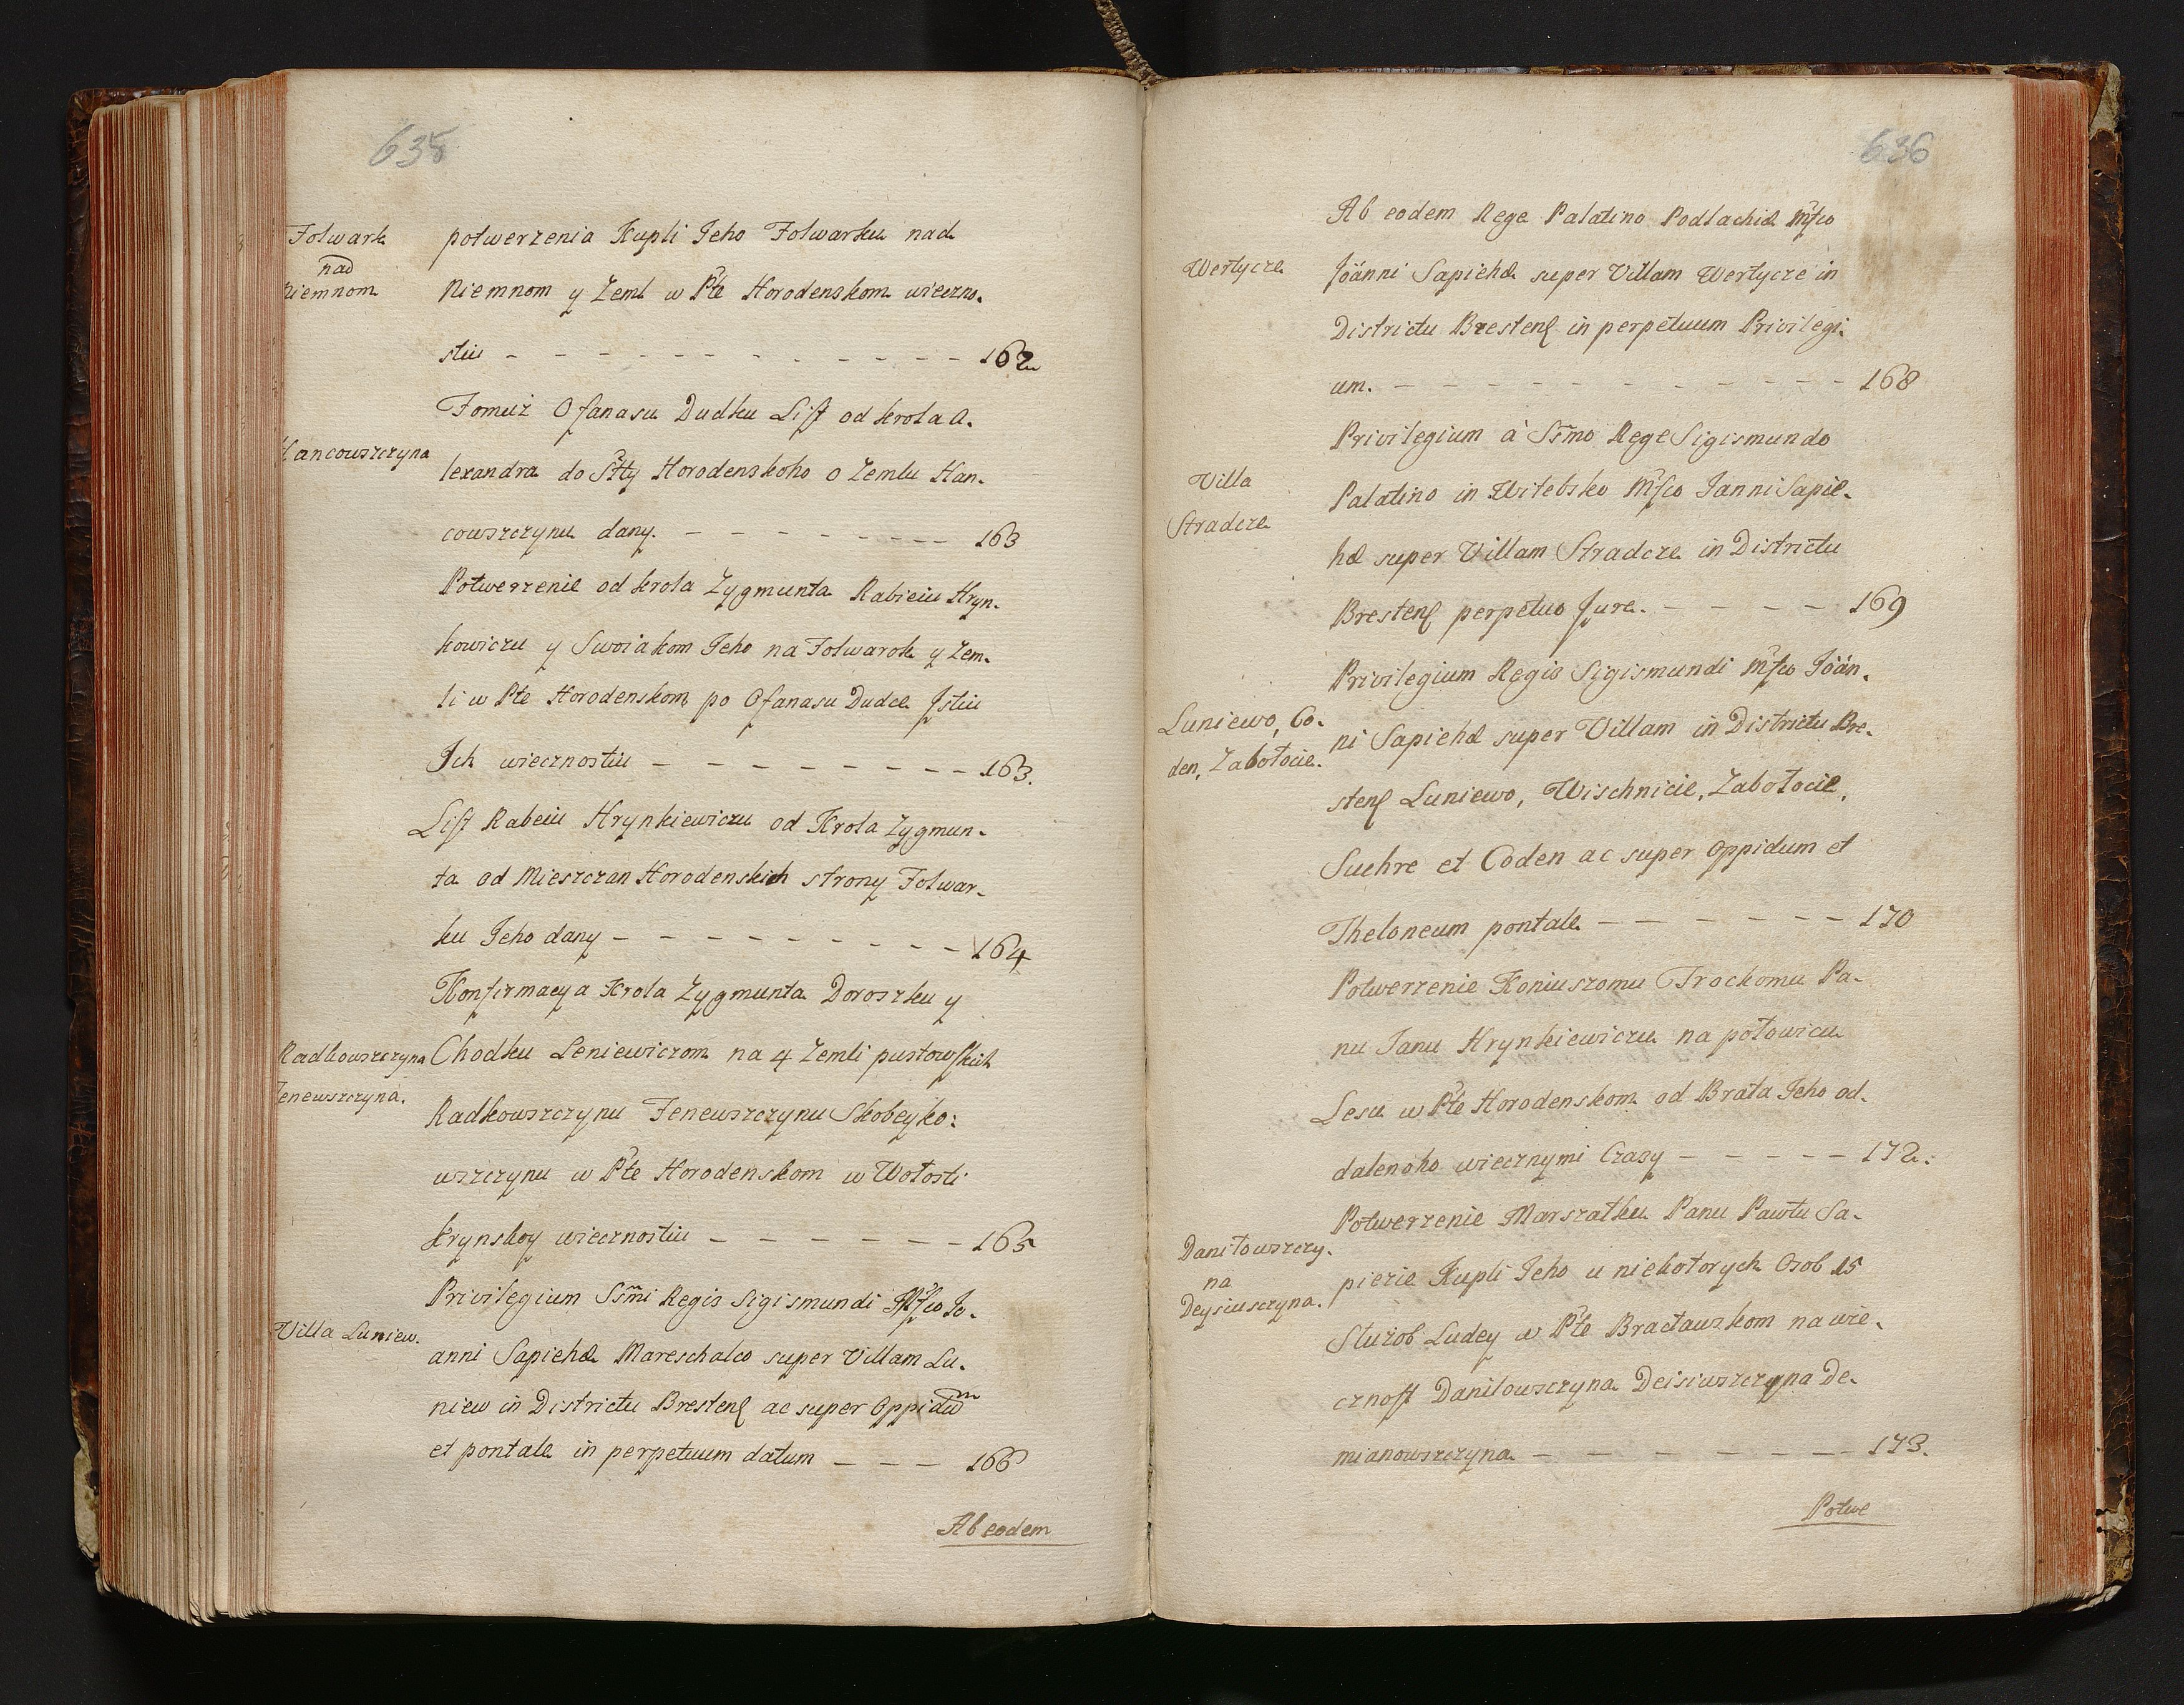 635
Folwark
nad
Niemnom
potwerzenia Kupli Jeho Folwarku nad
Niemnom y Zeml w Pte Horodenskom wieczno-
stiu - - - - - - - - - - - - - 162
Tomuż Ofanasu Dudku List od krola A-
Hancouszczyna
lexandra do Stty Horodenskoho o Zemlu Han-
couszczynu dany. - - - - - - - - - 163
Potwerzenie od krola Zygmunta Rabieiu Hryn-
kowiczu y Swoiakom Jeho na Folwarok y Zem-
li w Pte Horodenskom po Ofanasu Dudce Jstiu
Jch wiecznostiu - - - - - - - - - 163.
List Rabeiu Hrynkiewiczu od Krola Zygmun-
ta od Mieszczan Horodenskich strony Folwar-
ku Jeho dany - - - - - - - - - 164
Konfirmacya Krola Zygmunta Doroszku y
Radkowszczyna
Jenewszczyna.
Chodku Leniewiczom na 4 Zemli pustowskich
Radkowszczynu Jenewszczynu Skobeyko:
wszczynu w Pte Horodenskom w Wołosti
krynskoy wiecznostiu - - - - - - 165
Privilegium Ssmi Regis Sigismundi Mfco Jo-
Villa Luniew.
anni Sapiehæ Mareschalco super Villam Lu-
niew in Districtu Brestenß ac super Oppidum
et pontale in perpetuum datum - - - 166
Ab eodem
636
Ab eodem Rege Palatino Podlachiæ Mfco
Wertycze
Joänni Sapiehæ super Villam Wertycze in
Districtu Brestenß in perpetuum Privilegi-
um. - - - - - - - - - - - - - 168
Privilegium à Ssmo Rege Sigismundo
Villa
Stradcze
Palatino in Witebsko Mfco Janni Sapie-
hæ super Villam Stradcze in Districtu
Brestenß perpetuo Jure. - - - - - 169
Privilegium Regis Sigismundi Mfco Joän-
Luniewo, Co-
den, Zabołocie.
ni Sapiehæ super Villam in Districtu Bre-
stenß Luniewo, Wischnicie, Zabołocie,
Suchre et Coden ac super Oppidum et
Theloneum pontale - - - - - - 170
Potwerzenie Koniuszomu Trockomu Pa-
nu Janu Hrynkiewiczu na połowicu
Lesu w Pte Horodenskom od Brata Jeho od-
dalenoho wiecznymi Czasy - - - - - 172.
Potwerzenie Marszałku Panu Pawłu Sa-
Daniłowszczy-
na
Deysiusczyna.
piezie Kupli Jeho u niekotorych Osob 15
Służob Ludey w Pte Bractauskom na wie-
cznost Danilouszczyna Deisiuszczyna De-
mianowszczyna - - - - - - - - 173.
Potwe